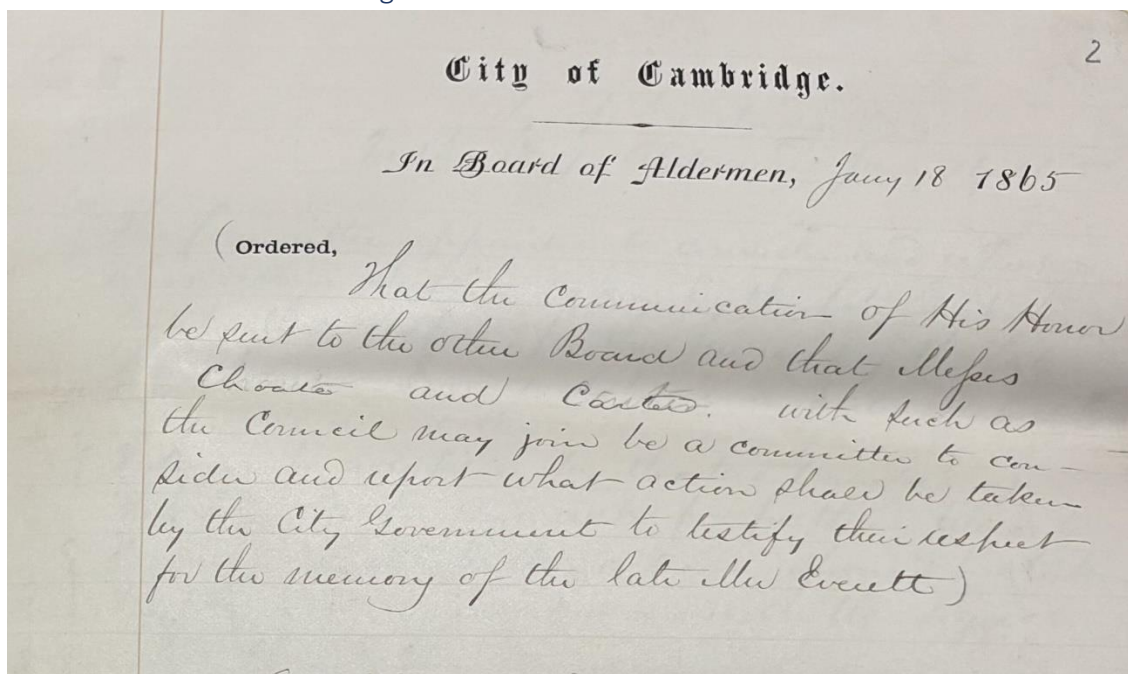 2
City of Cambridge.
In Board of Aldermen, Jany 18 1865
(Ordered,
That the Communication of His Honor
be sent to the other Board and that Messrs
Choate and Carter. with such as
the Council may join be a committee to con-
sider and report what action shall be taken
by the City Government to testify their respect
for the memory of the late Mr Everett)